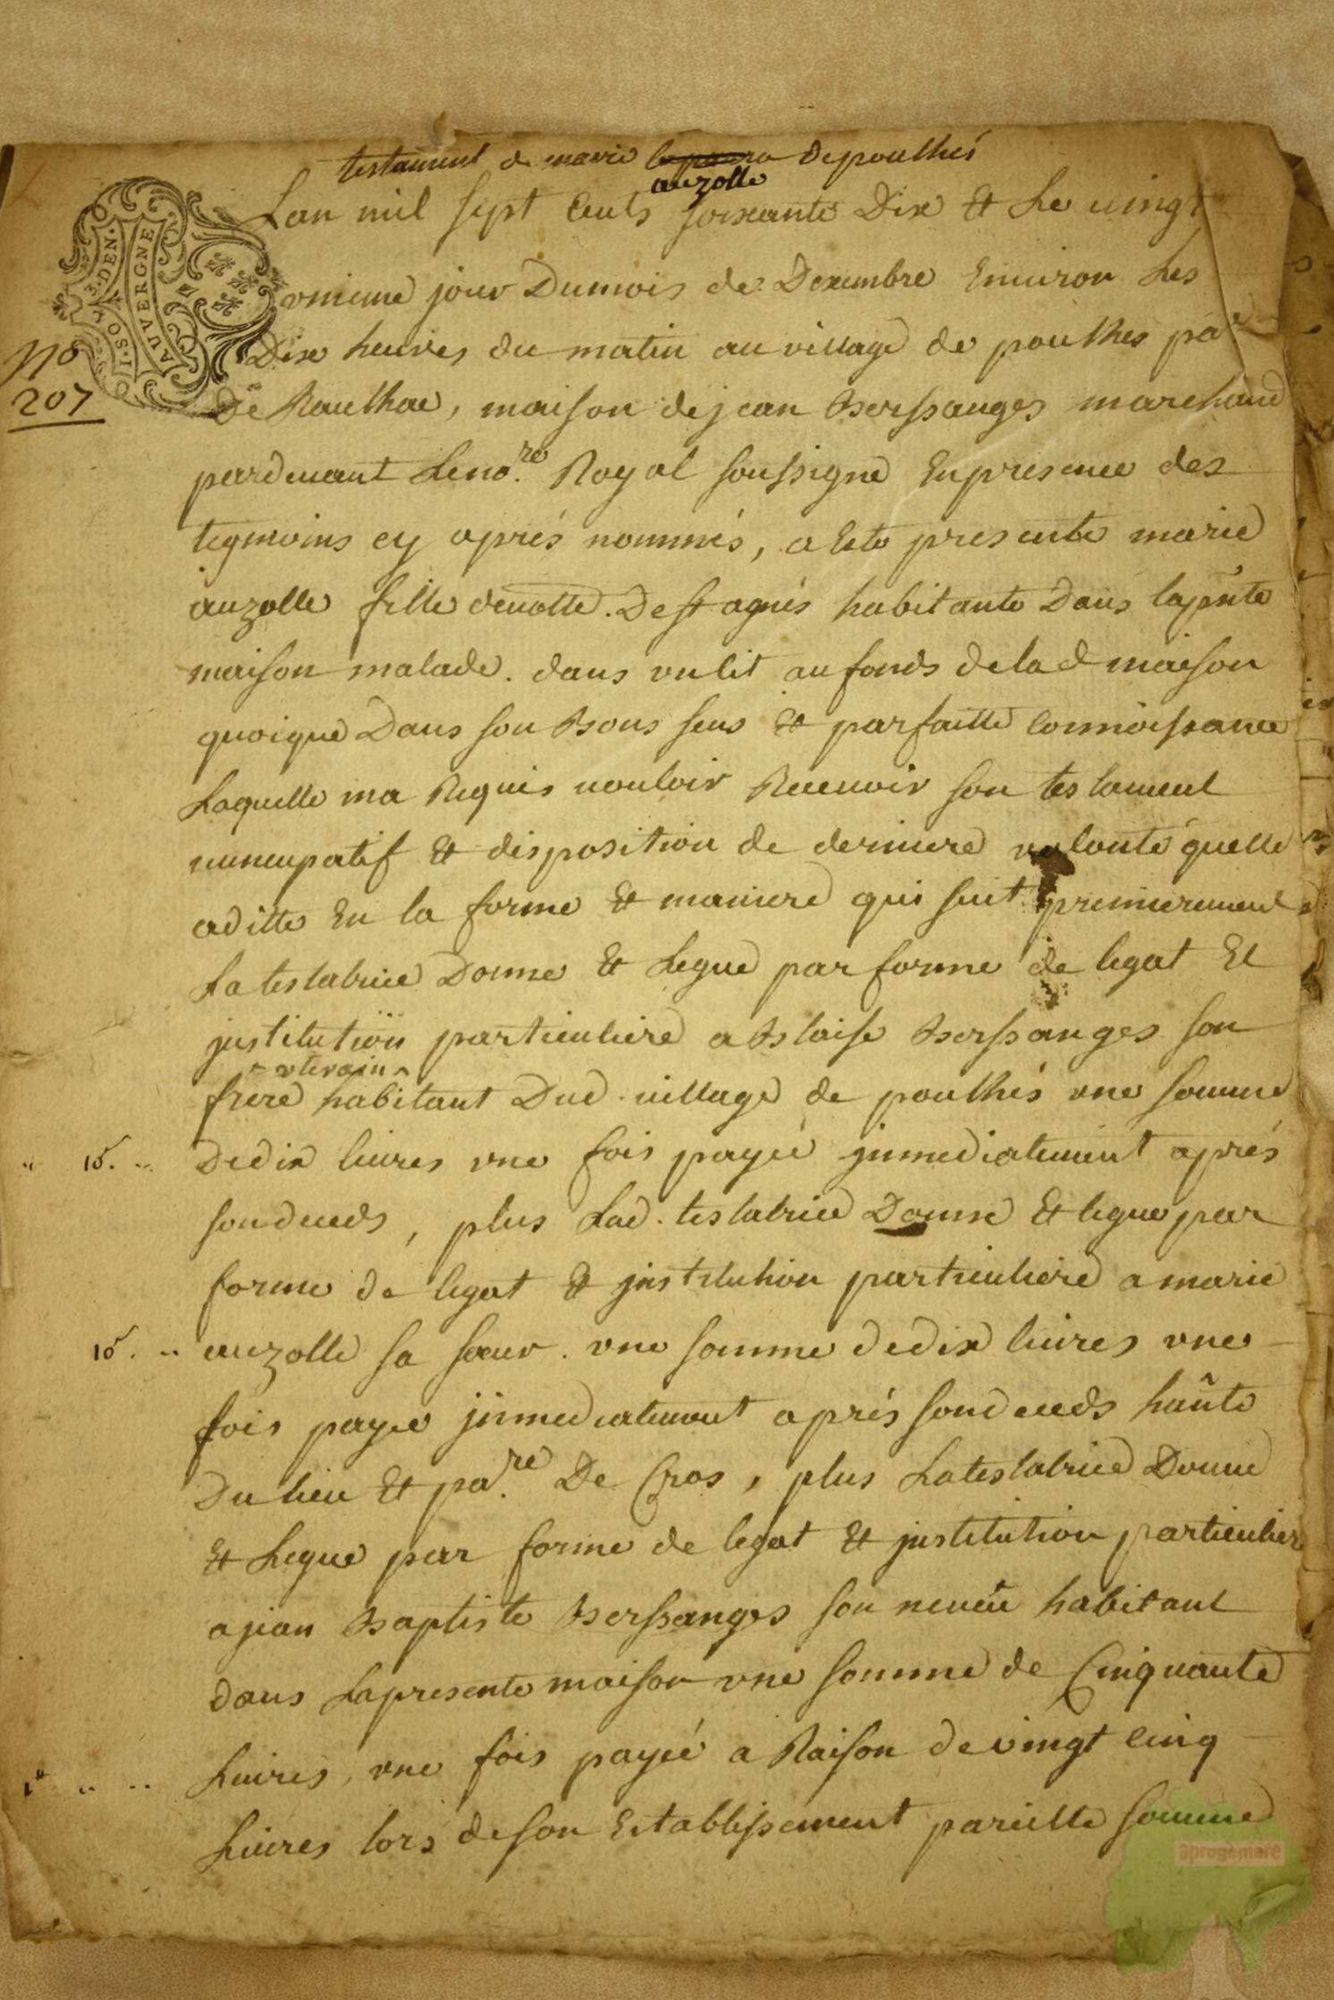 testament de marie auzolle de pouthés
Lan mil sept cents soixante Dix & Le vingt
unieme jour Dumois de Dexembre Environ Les
Dix heures du matin au village de pouthes pa.
De Raulhac, maison dejean Berssanges marchand
pardevant Leno.re Royal soussigné Enpresence des
tegmoins cy aprés nommés, a Este presente marie
auzolle fille devotte. Dest agnés habitante Dans lapnte
maison malade. dans un lit aufonds delad maison
quoique Dans son Bons sens & parfaitte connoissance
Laquelle ma Requis vouloir Recevoir son testament
nuncupatif & disposition de derniere volonté quelle
aditte En la forme & maniere qui suit premierement
Latestatrice Donne & Legue par forme de legat Et
institution particuliere a Blaise Berssanges son
uterain
frere habitant Dud. village de pouthés une somme
" 10. " Dedix livres une fois payée immediatement aprés
sondeceds, plus Lad. testatrice Donne & legue par
forme de legat & institution particuliere a marie
10. " auzolle sa sœur. une somme dedix livres une
fois payée immediatement aprés sondeceds hante
Du lieu Et pa.re De Cros, plus Latestatrice Donne
& Legue par forme de legat & institution particuliere
ajean Baptiste Berssanges son neveu habitant
dans Lapresente maison une somme de Cinquante
Livres, une fois payée a Raison de vingt cinq
Livres lors deson Establissement pareille somme
no
207
3.DEN.
AUVERGNE
aprogemere